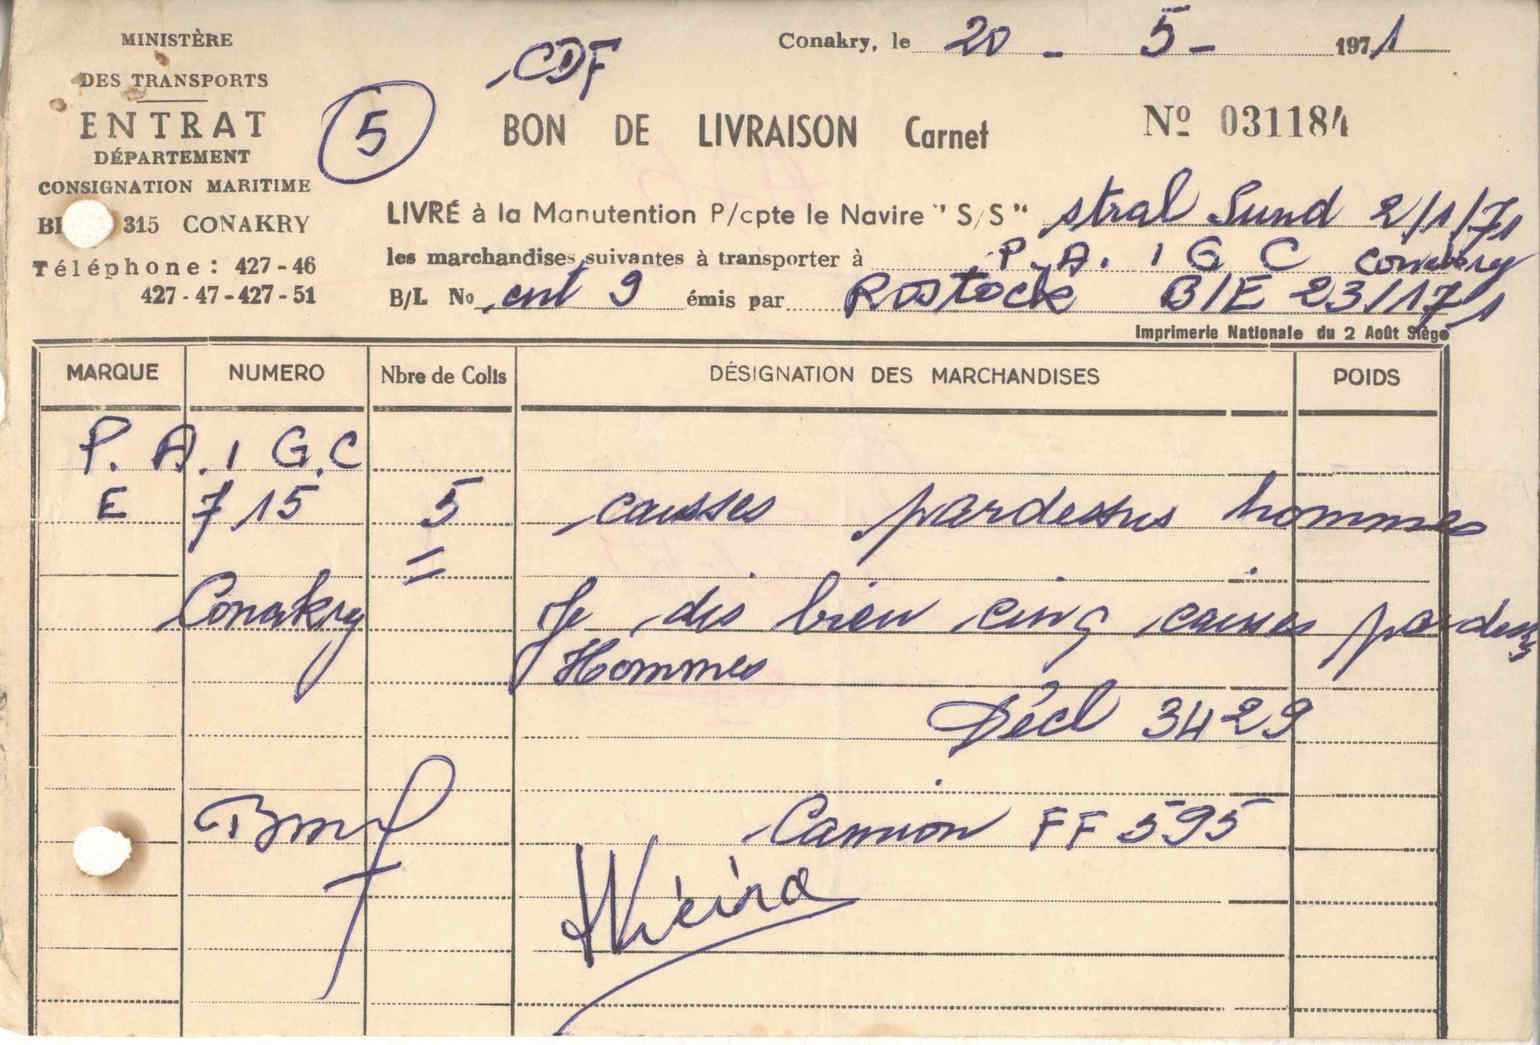 MINISTÈRE
DES TRANSPORTS
ENTRAT
DÉPARTEMENT
CONSIGNATION MARITIME
B 315 CONAKRY
Téléphone : 427-46
427-47-427-51
5
CDF
Conakry, le 20 - 5 - 1971
BON DE LIVRAISON Carnet
Nº 031184
LIVRÉ à la Manutention P/cpte le Navire "S/S" stral Sund 2/1/71
les marchandises suivantes à transporter à P.A.IGC Conakry
B/L No ent 9 émis par Rostock B/E 23/171
Imprimerie Nationale du 2 Août Siège
MARQUE NUMERO Nbre de Colis DÉSIGNATION DES MARCHANDISES POIDS
P.A.IG.C
E 715 5 caisses pardessus hommes
Conakry Je dis bien cinq caisses pardess
Hommes
Décl 3429
Camion FF 595
Vieira